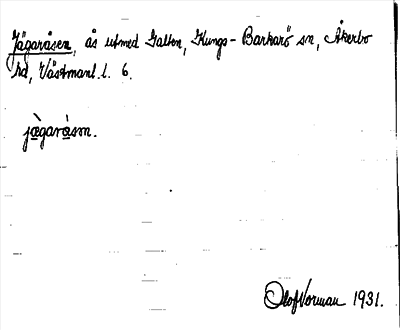 Jägaråsen, ås utmed Galten, Kungs-Barkarö sn, Åkerbo
hd, Västmanl. l. 6.
jä̀garåsm.
Olof Norman 1931.